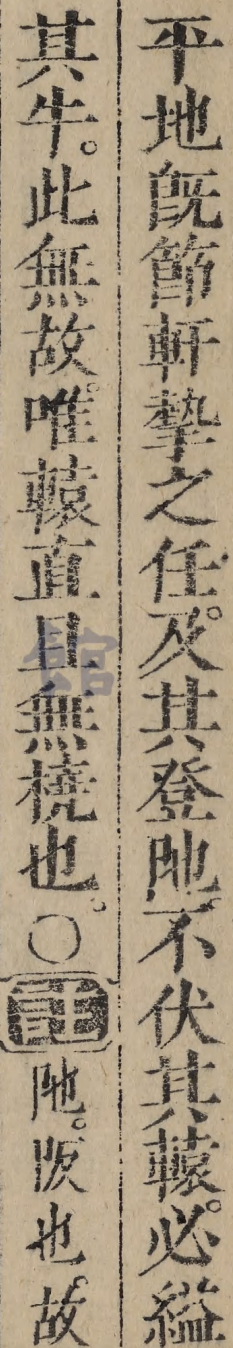 平地旣節軒摯之任。及其登阤。不伏其轅。必縊
其牛。此無故。唯轅直且無橈也。○註阤。阪也。故